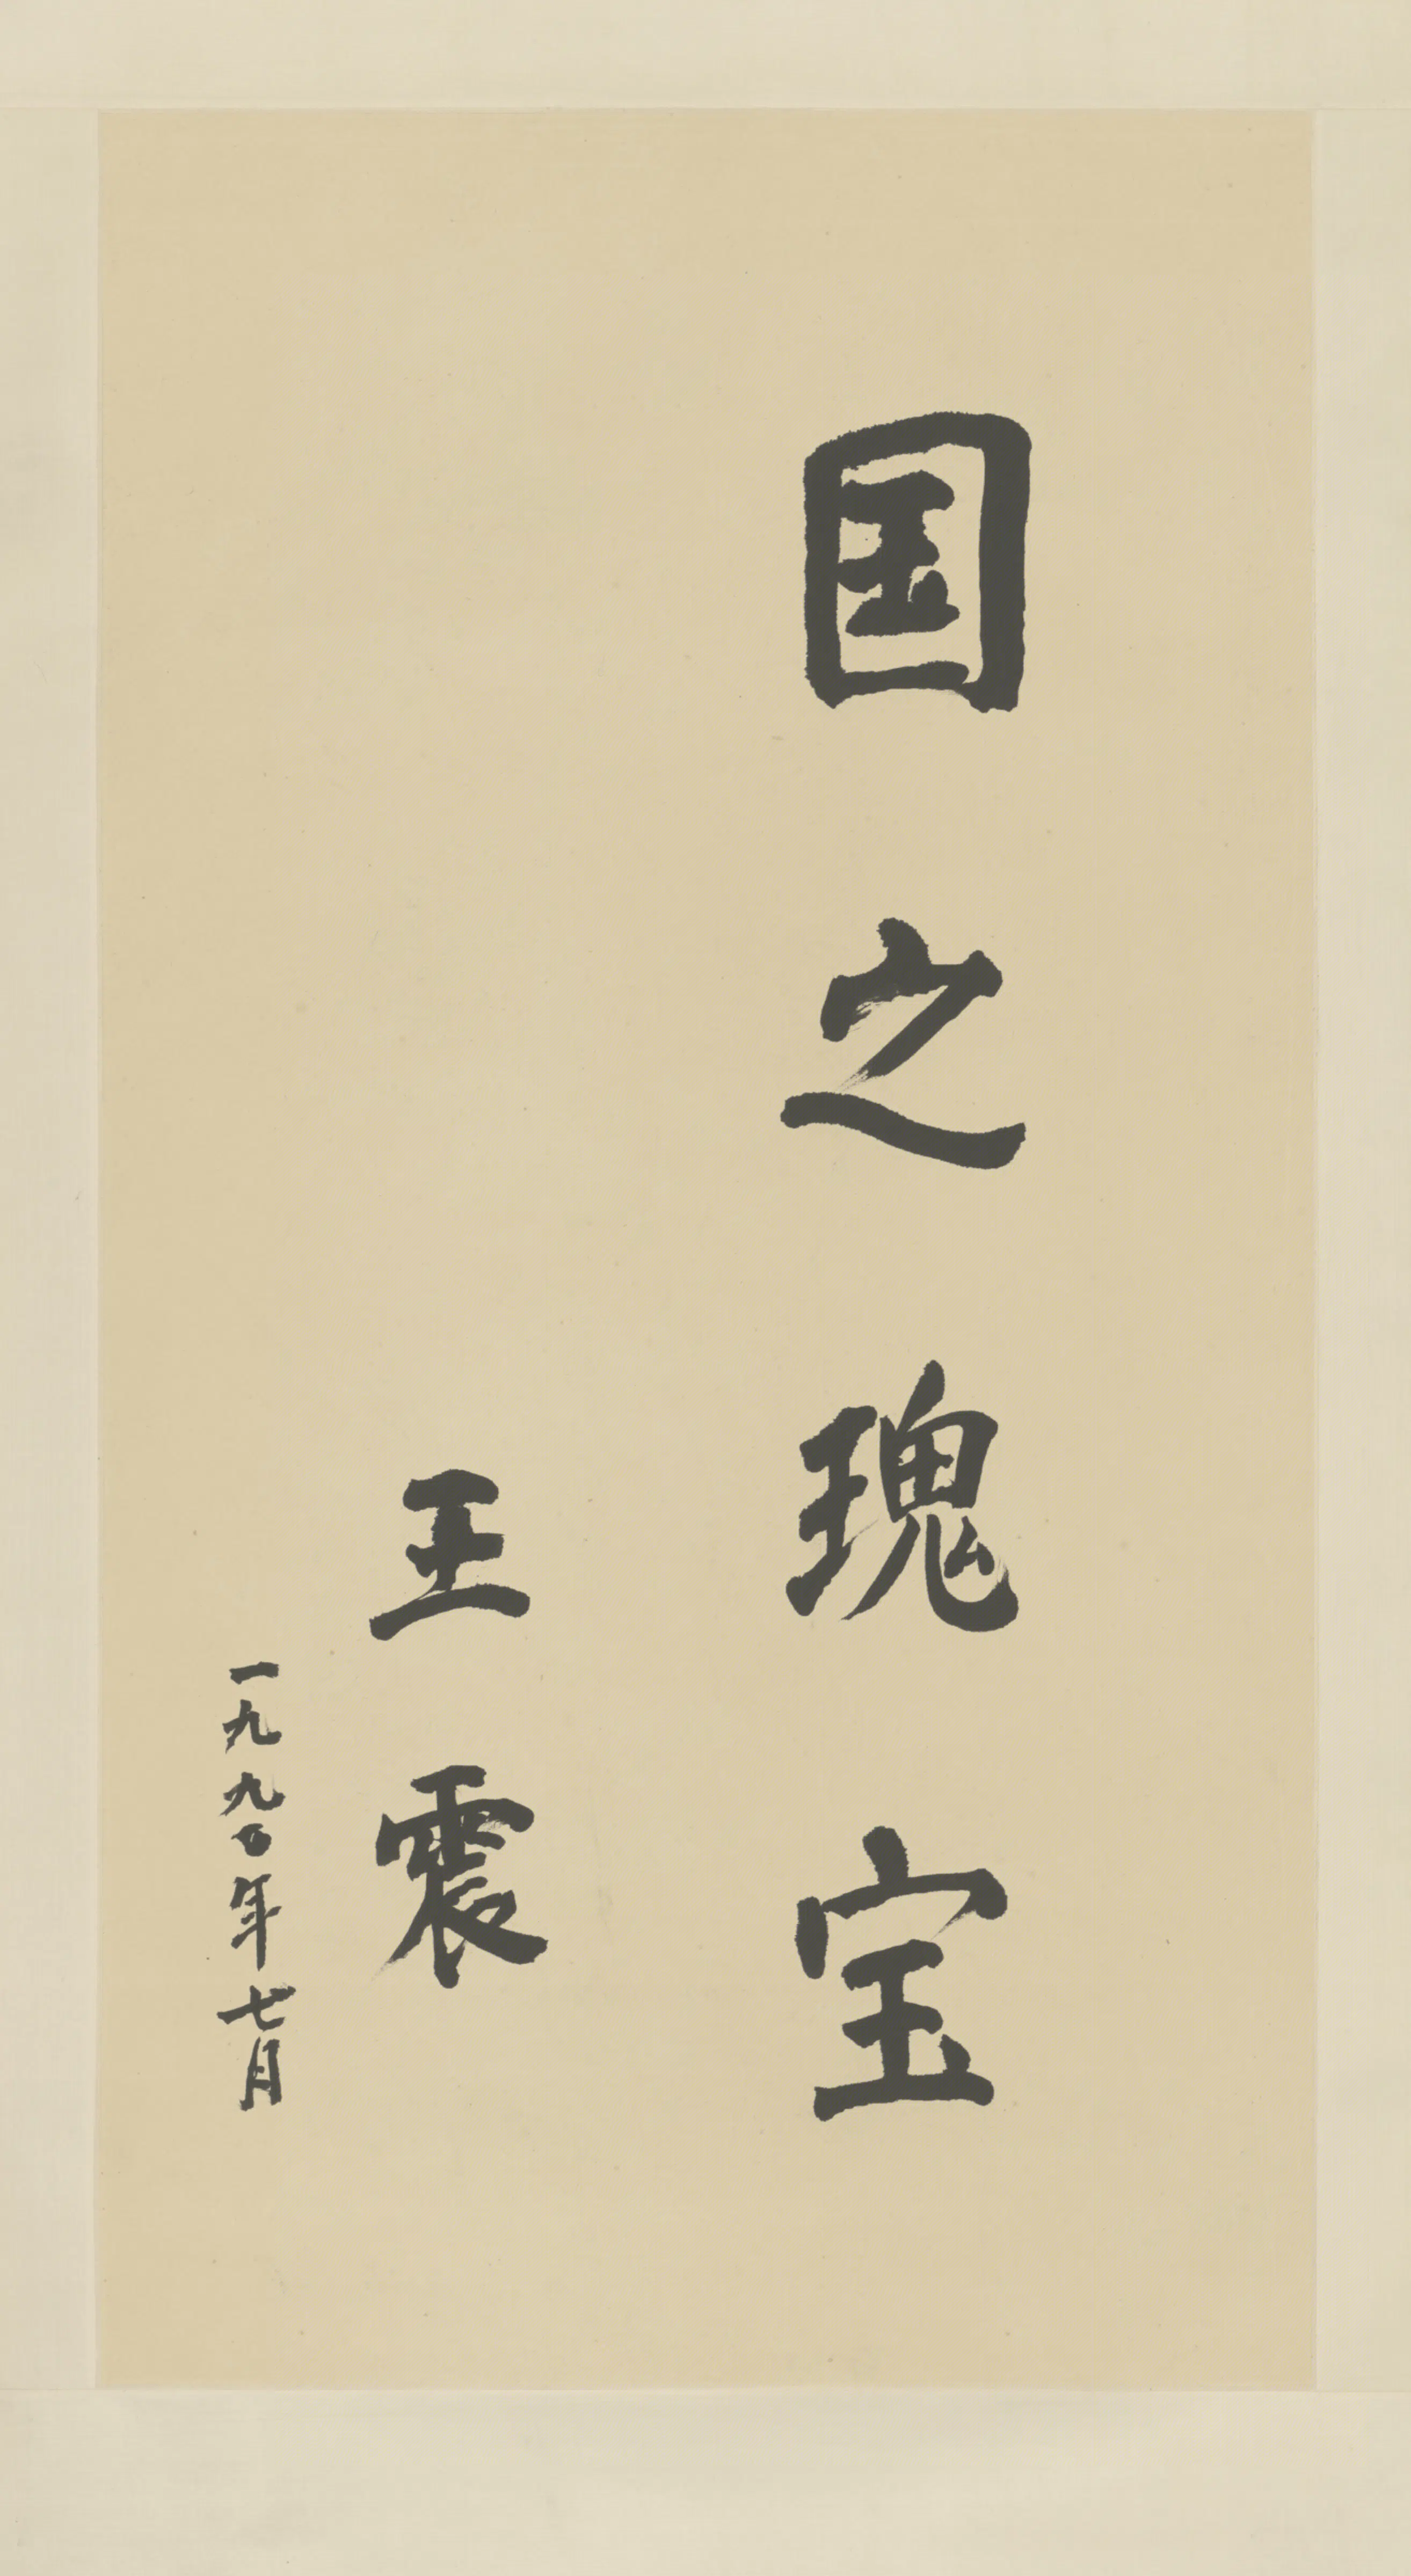 国之瑰宝
王震
一九九〇年七月